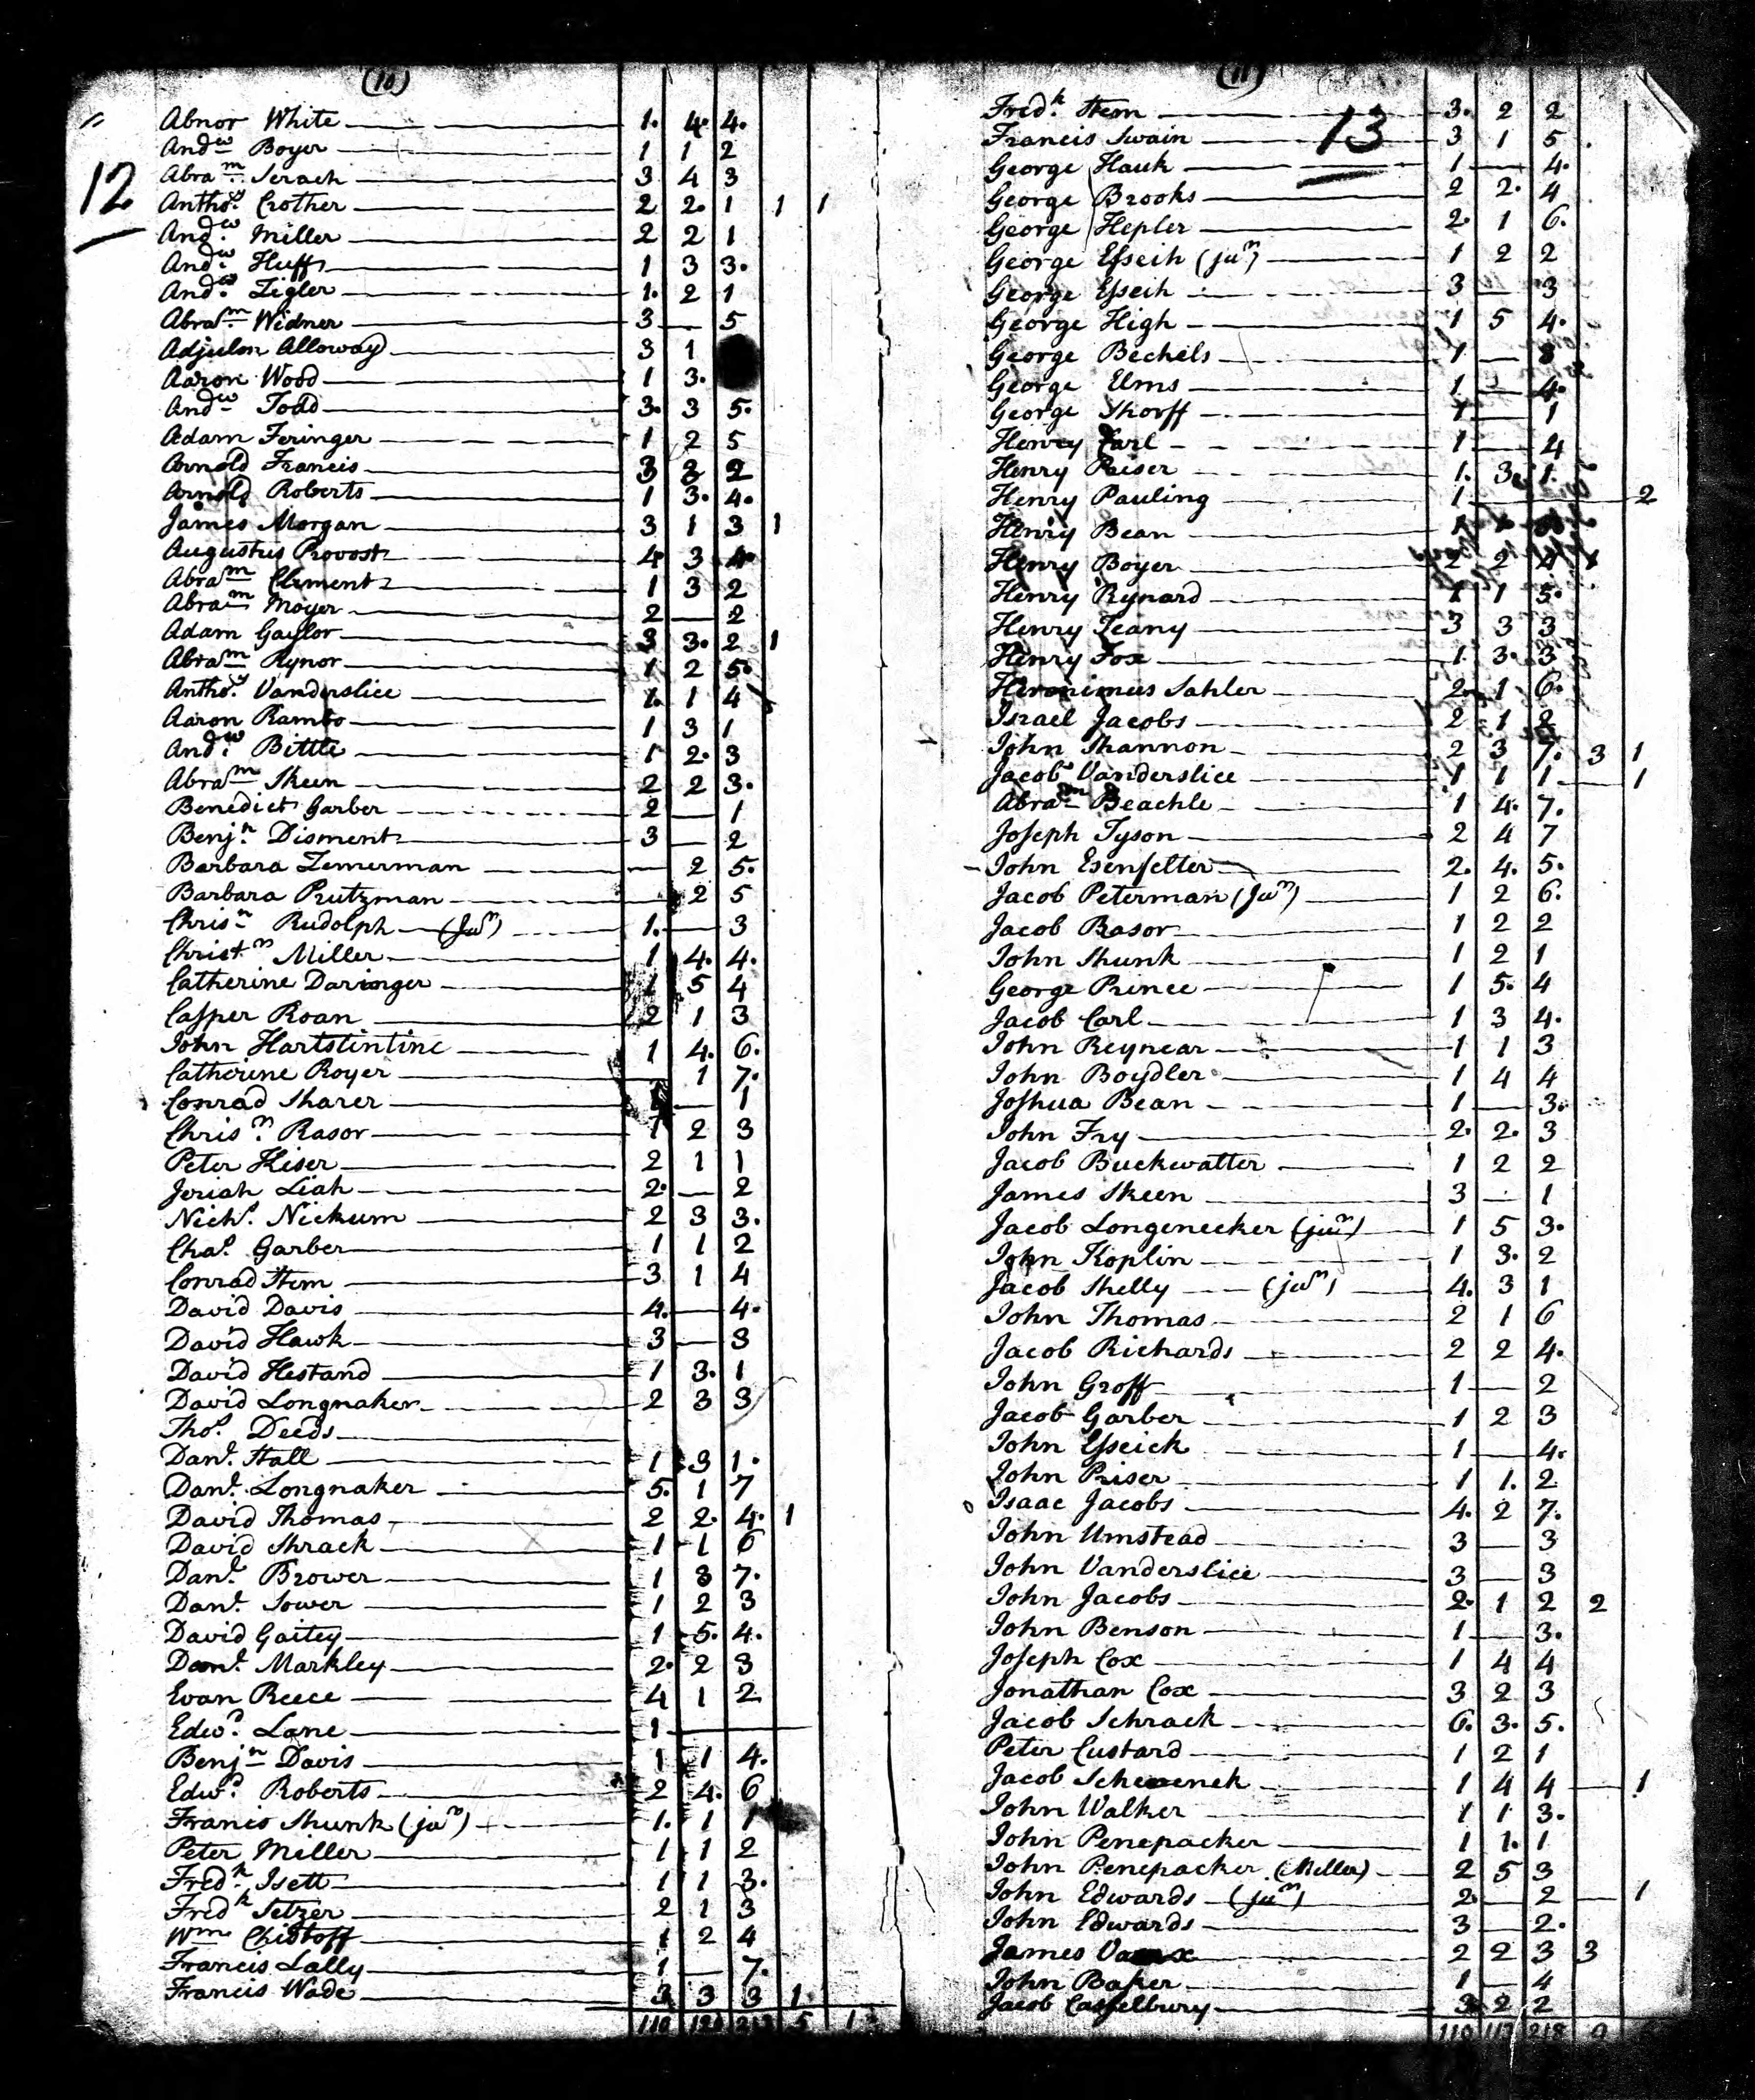 (10)
12
Abnor White 1. 4. 4.
Andw Boyer 1 1 2
Abram Serach 3 4 3
Anthoy Crother 2 2. 1 1 1
Andw Miller 2 2 1
Andw Huff 1 3 3.
Andw Zigler 1. 2 1
Abram Widner 3 — 5
Adjulon Alloway 3 1
Aaron Wood 1 3.
Andw Todd 3. 3 5.
Adam Feringer 1 2 5
Arnold Francis 3 2 2
Arnold Roberts 1 3. 4.
James Morgan 3 1 3 1
Augustus Provost 4. 3 4.
Abram Clement 1 3 2
Abram Moyer 2 — 2
Adam Gaylor 3 3. 2 1
Abram Rynor 1 2 5.
Anthoy Vanderslice 1. 1 4
Aaron Rambo 1 3 1
Andw Bittle 1 2. 3
Abram Skeen 2 2 3.
Benedict Garber 2 — 1
Benjn Disment 3 — 2
Barbara Zemerman — 2 5.
Barbara Prutzman — 2 5
Chrisn Rudolph (Jun) 1. — 3
Christn Miller 1 4. 4.
Catherine Daringer 1 5 4
Casper Roan 2 1 3
John Hartstintine 1 4. 6.
Catherine Royer — 1 7.
Conrad Sharer 1 — 1
Chrisn Rasor 1 2 3
Peter Kiser 2 1 1
Jeriah Liah 2. — 2
Nichs Nickum 2 3 3.
Chas Garber 1 1 2
Conrad Stem 3 1 4
David Davis 4. — 4.
David Hawk 3 — 3
David Hestand 1 3. 1
David Longnaker 2 3 3
Thos Deeds
Danl Hall 1 3 1.
Danl Longnaker 5. 1 7
David Thomas 2 2. 4. 1
David Shrack 1 1 6
Danl Brower 1 3 7.
Danl Sower 1 2 3
David Gaitey 1 5. 4.
Danl Markley 2. 2 3
Evan Reece 4 1 2
Edwd Lane 1 —
Benjn Davis 1 1 4.
Edwd Roberts 2 4. 6
Francis Shunk (jun) 1. 1 1
Peter Miller 1 1 2
Fredk Isett 1 1 3.
Fredk Setzer 2 1 3
Wm Chistoff 1 2 4
Francis Lally 1 — 7.
Francis Wade 3 3 3 1.
110 5
(11)
13
Fredk Stem 3. 2 2
Francis Swain 3 1 5
George Hauk 1 — 4.
George Brooks 2 2. 4
George Hepler 2. 1 6.
George Esseih (jun) 1 2 2
George Esseih 3 — 3
George High 1 5 4.
George Bechels 1 — 3
George Elms 1 — 4.
George Shorff 1 — 1
Henry Carl 1 — 4
Henry Priser 1. 3 1.
Henry Pauling 1 — 2
Henry Bean 1
Henry Boyer 2 2 4
Henry Rynard 1 1 5.
Henry Teany 3 3 3
Henry Fox 1. 3. 3
Heronimus Sahler 2 1 6.
Israel Jacobs 2 1 2
John Shannon 2 3 7. 3 1
Jacob Vanderslice 1 1 1 — 1
Abram Beachle 1 4. 7.
Joseph Tyson 2 4 7
John Esenfelter 2. 4. 5.
Jacob Peterman (Jun) 1 2 6.
Jacob Rasor 1 2 2
John Shunk 1 2 1
George Prince 1 5. 4
Jacob Carl 1 3 4.
John Reynear 1 1 3
John Boydler 1 4 4
Joshua Bean 1 — 3.
John Fry 2. 2. 3
Jacob Buckwatter 1 2 2
James Skeen 3 — 1
Jacob Longenecker (jun) 1 5 3.
John Koplin 1 3. 2
Jacob Shelly (jun) 4. 3 1
John Thomas 2 1 6
Jacob Richards 2 2 4.
John Groff 1 — 2
Jacob Garber 1 2 3
John Esseick 1 — 4.
John Priser 1 1. 2
Isaac Jacobs 4. 2 7.
John Umstead 3 — 3
John Vanderslice 3 — 3
John Jacobs 2. 1 2 2
John Benson 1 — 3.
Joseph Cox 1 4 4
Jonathan Cox 3 2 3
Jacob Schrack 6. 3. 5.
Peter Custard 1 2 1
Jacob 1 4 4 — 1
John Walker 1 1 3.
John Penepacker 1 1. 1
John Penepacker (Miller) 2 5 3
John Edwards (jun) 2. — 2 — 1
John Edwards 3 — 2.
James Vaux 2 2 3 3
John Baker 1 — 4
Jacob Casselbury 3 2 2
110 117 218 9